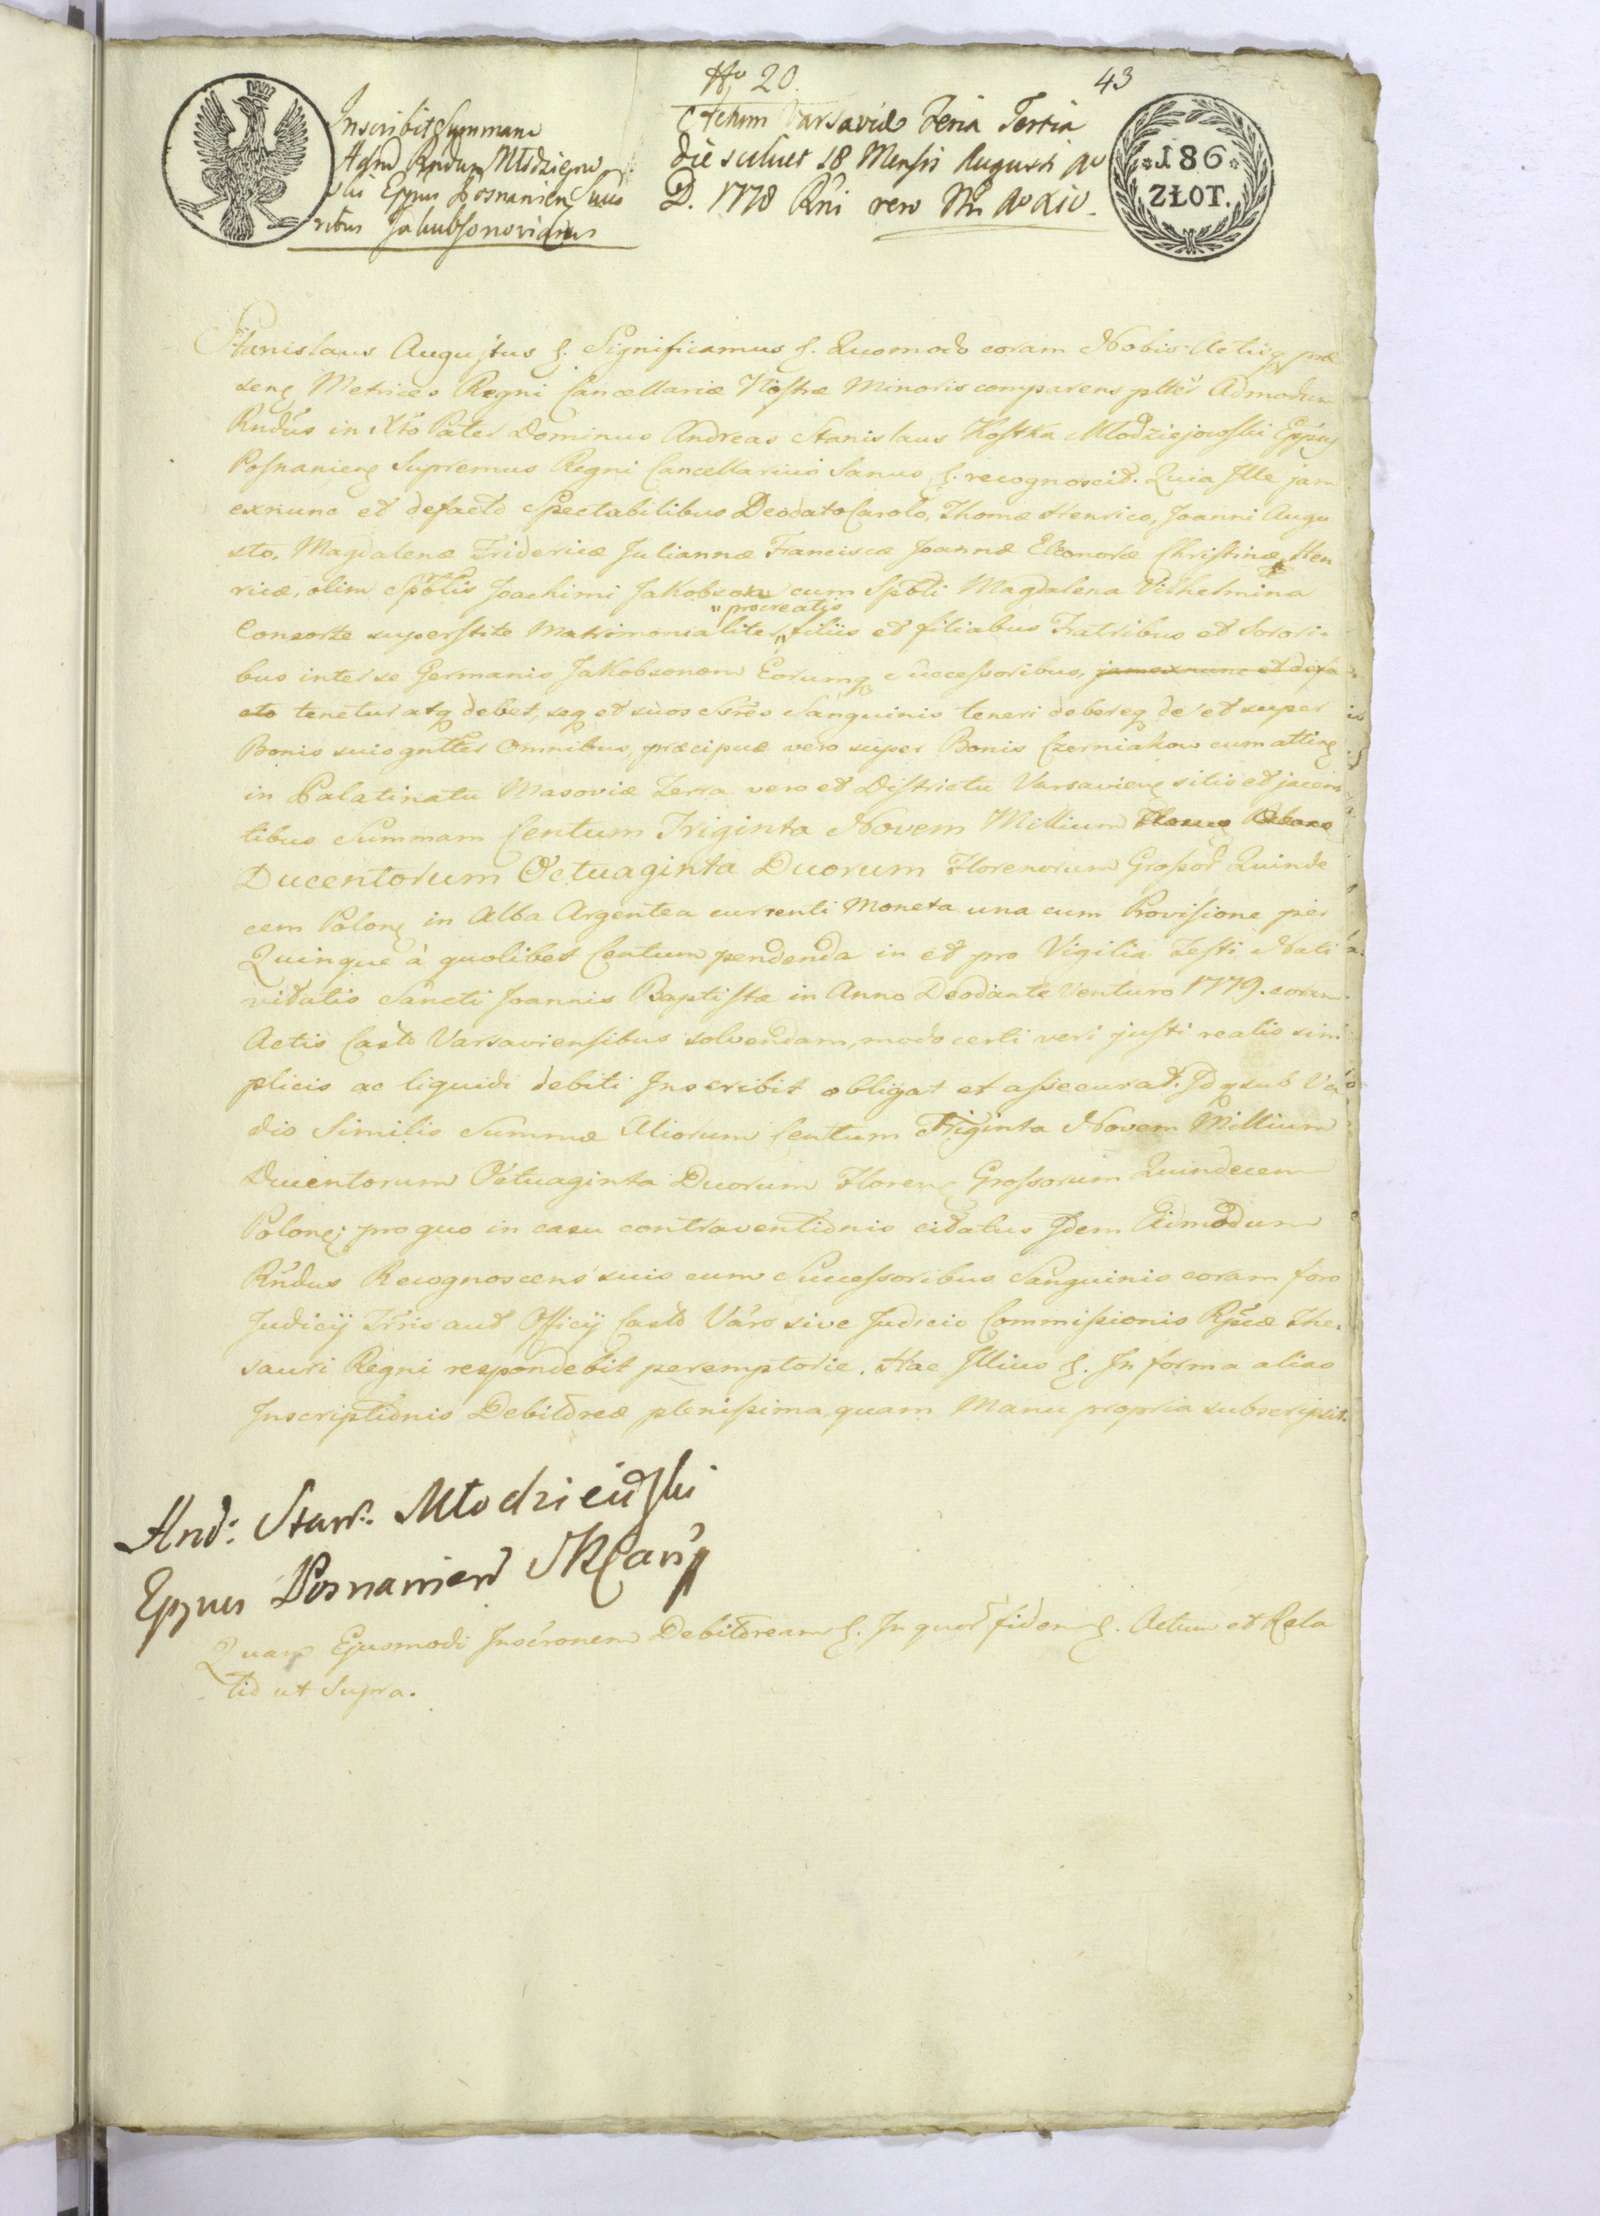 No 20.
43
Inscribit Summam
Admd Rndus Młdziejow
ski Eppus Posnanien Succ
ribus Jakubsonovianis
Actum Varsaviæ Feria Tertia
die scilicet 18 Mensis Augusti Ao
D. 1778 Rni vero Nri Ao XIV.
186
ZŁOT.
Stanislaus Augustus &. Significamus &. Quomodo coram Nobis Actisq præ
senq Metrices Regni Cancellariæ Nostræ Minoris comparens plter Admodum
Rndus in Xto Pater Dominus Andreas Stanislaus Kostka Młodziejowski Eppus
Posnanienq Supremus Regni Cancellarius Sanus &. recognoscit. Quia Ille jam
exnunc et defacto Spectabilibus Deodato Carolo, Thomæ Henrico, Joanni Augu
sto, Magdalenæ Fridericæ Juliannæ Franciscæ Joannæ Eleonoræ Christinæ Hen
ricæ, olim Spblis Joachimi Jakobson cum Spbli Magdalena Vilhelmina
procreatis
Consorte superstite Matrimonialiter filiis et filiabus Fratribus et Sorori-
bus inter se Germanis Jakobsonom Eorumq Successoribus, jam exnunc et defa
cto tenetur atq debet, seq et suos Sres Sanguinis teneri debereq de et super
Bonis suis gntter Omnibus, præcipuæ vero super Bonis Czerniakow cum attinq
in Palatinatu Masoviæ Terra vero et Districtu Varsavienq sitis et jacen
tibus Summam Centum Triginta Novem Millium
Ducentorum Octuaginta Duorum Florenorum Grossor Quinde
cem Polonq in Alba Argentea currenti Moneta una cum Provisione per
Quinque à quolibet Centum pendenda in et pro Vigilia Festi Nati
vitatis Sancti Joannis Baptistæ in Anno Deodante Venturo 1779. coram
Actis Castr Varsaviensibus solvendam, modo certi veri justi realis sim
plicis ac liquidi debiti Inscribit obligat et assecurat. Idq sub Va
dio Similis Summæ Aliorum Centum Triginta Novem Millium
Ducentorum Octuaginta Duorum Florenq Grossorum Quindecem
Polonq; pro quo in casu contraventionis citatus Idem Admodum
Rndus Recognoscens suis cum Successoribus Sanguinis coram foro
Judicij Trris aut Officij Castr Varš sive Judicio Commissionis Rpcæ The-
sauri Regni respondebit peremptorie. Hac Illius &. In forma alias
Inscriptionis Debitoreæ plenissima, quam Manu propria subscripsit.
And: Stan: Młodzieiowski
Eppus Posnanien SRCanp
Quam Ejusmodi Inscronem Debitoream &. In quor fidem &. Actum et Rela
tio ut Supra.